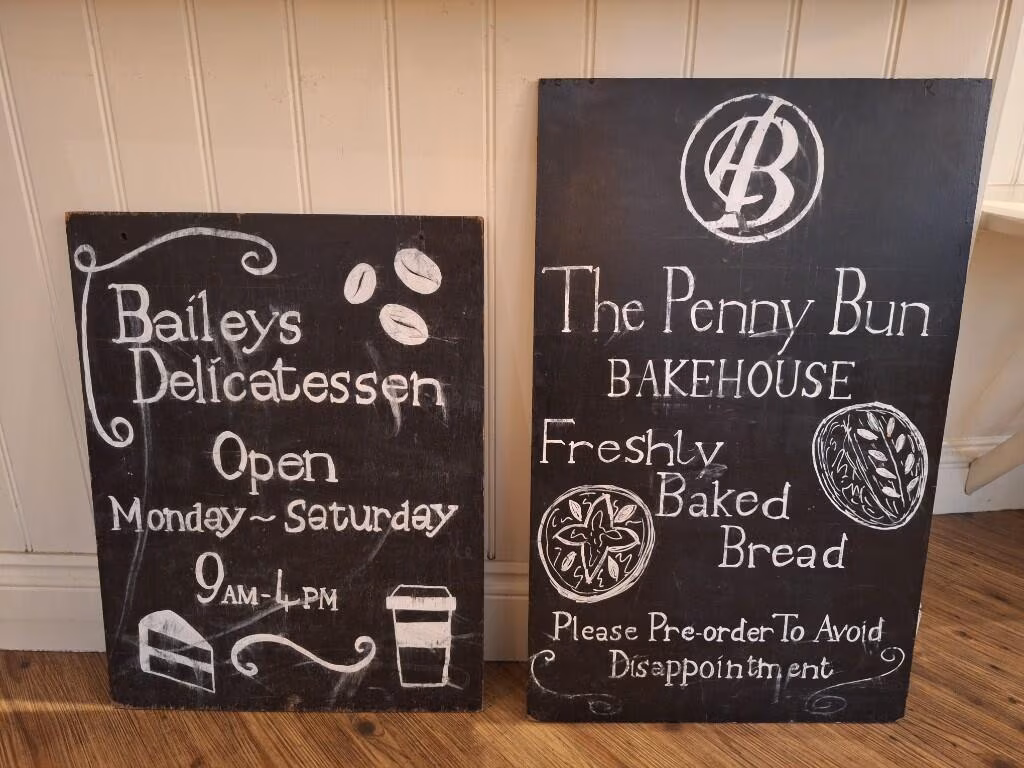 Baileys
Delicatessen
Open
Monday~Saturday
9AM-4PM
B
The Penny Bun
BAKEHOUSE
Freshly
Baked
Bread
Please Pre-order To Avoid
Disappointment